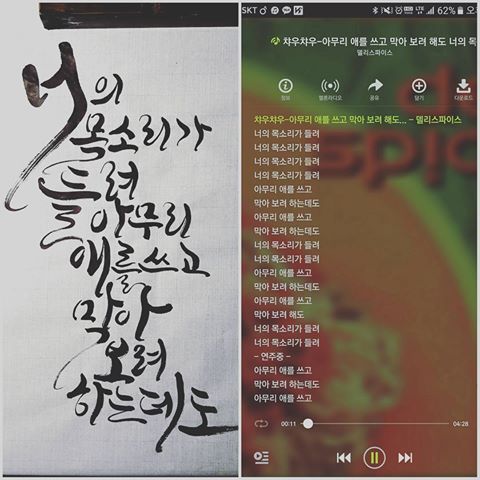 너의
목소리가
들려
아무리
애를쓰고
막아
보려
하는데도
SKT
LTE
62%
챠우챠우-아무리 애를 쓰고 막아 보려 해도 너의 목
델리스파이스
정보
멜론라디오
공유
담기
다운로드
챠우챠우-아무리 애를 쓰고 막아 보려 해도... - 델리스파이스
너의 목소리가 들려
너의 목소리가 들려
너의 목소리가 들려
너의 목소리가 들려
아무리 애를 쓰고
막아 보려 하는데도
아무리 애를 쓰고
막아 보려 하는데도
너의 목소리가 들려
너의 목소리가 들려
아무리 애를 쓰고
막아 보려 하는데도
아무리 애를 쓰고
막아 보려 해도
너의 목소리가 들려
너의 목소리가 들려
- 연주중 -
아무리 애를 쓰고
막아 보려 하는데도
아무리 애를 쓰고
00:11
04:28